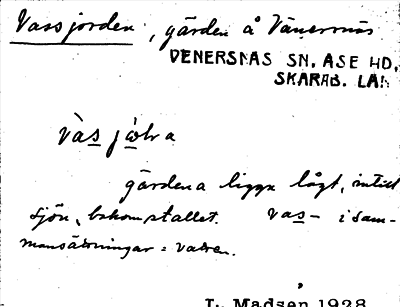 Vassjorden, gärden å Vänernäs
VENERSNAS SN. ASE HD.
SKARAB. LÄN
vàs jọḷra
gärdena ligga lågt, intill
sjön, bakom stallet. vas- i sam-
mansättningar = vatten.
L. Madsen 1928